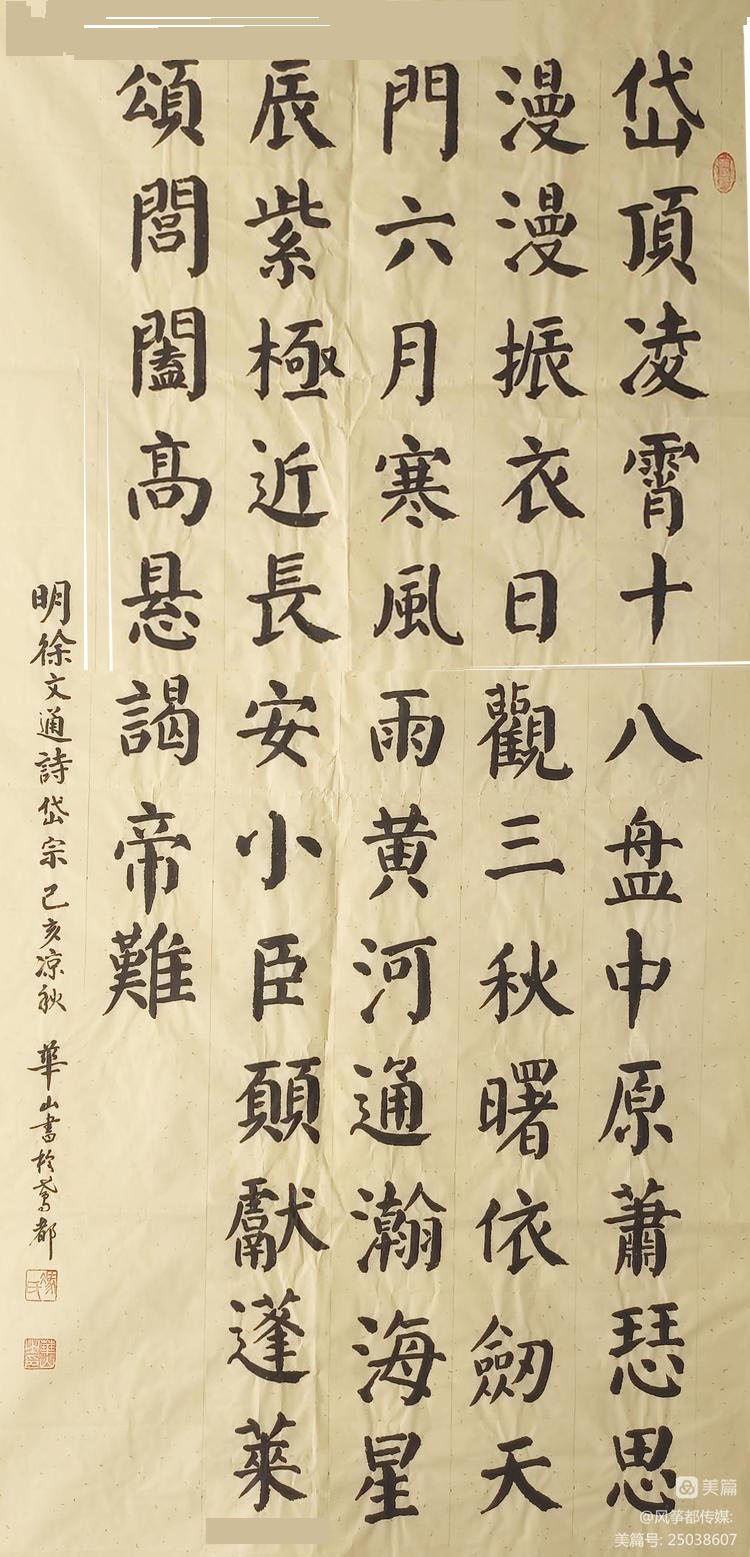 岱頂凌霄十八盤中原蕭瑟思
漫漫振衣日觀三秋曙依劒天
門六月寒風雨黄河通瀚海星
辰紫極近長安小臣願獻蓬萊
頌閶闔髙悬謁帝難
明徐文通詩岱宗己亥凉秋 華山書於鳶都
美篇
@风筝都传媒:
美篇号: 25038607